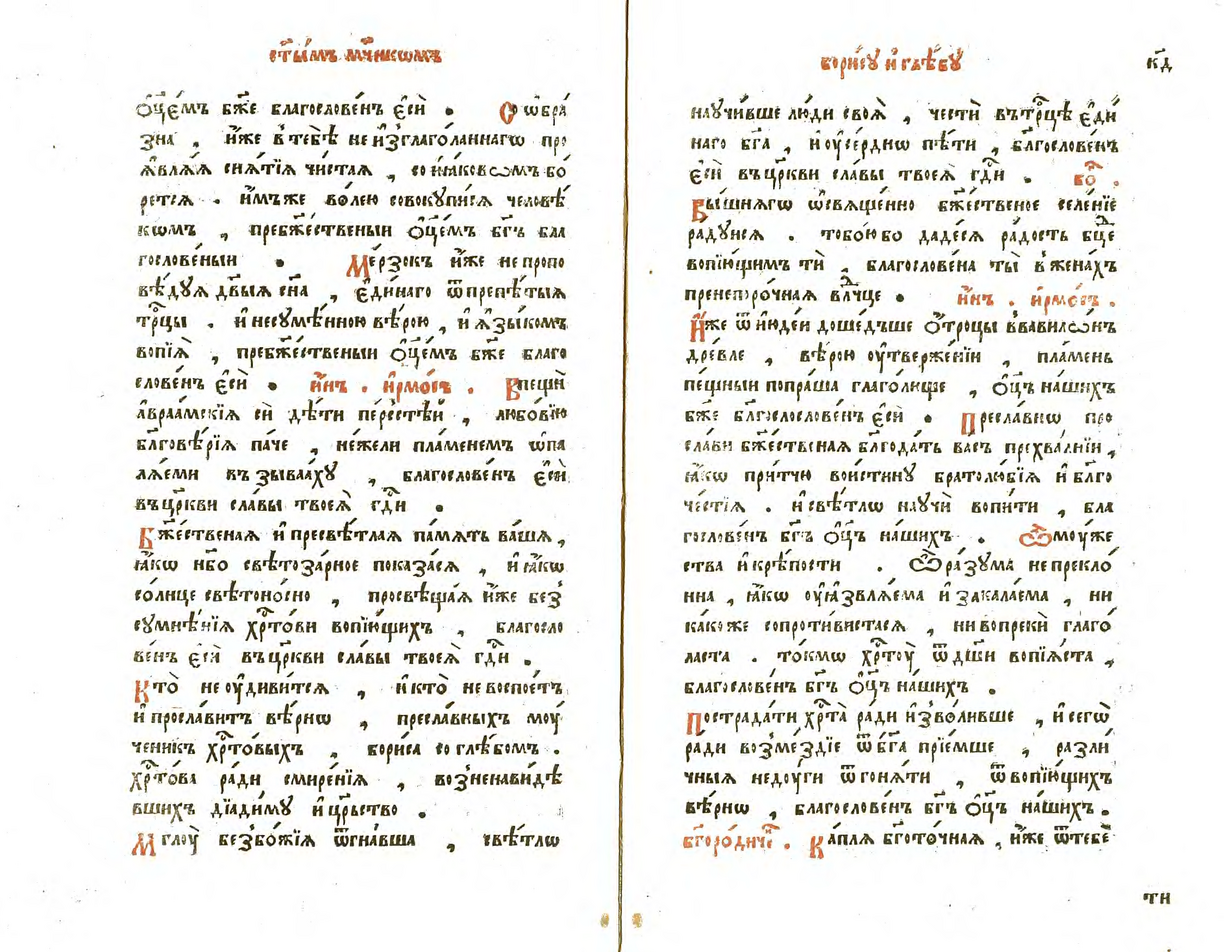 ст҃ы́мъ мч҃нкѡмъ
ѻ҆ц҃є́мъ бж҃е благослове́нъ є҆сѝ . Соѡбра́
зна , и҆́же в тебѣ̀ не и҆зглаго́ланнагѡ про
ѧ҆влѧ́ѧ снѧ́тїѧ чи́стаѧ , со и҆а́ковѡмъ бо́
ретсѧ . и҆́мъже во́лею совокупи́сѧ человѣ́
комъ , пребж҃е́ственыи ѻ҆ц҃є́мъ бг҃ъ бла
гослове́ныи . Ме́рзокъ и҆́же не пропо
вѣ́дуѧ двы́ѧ сн҃а , є҆ди́наго ѿ препѣ́тыѧ
трⷪ҇цы . и҆ несумѣ́нною вѣ́рою , и҆ ѧ҆зы́комъ
вопїѧ̀ , пребж҃е́ственыи ѻ҆ц҃є́мъ бж҃е благо
слове́нъ є҆сѝ . и҆́нъ . і҆рмо́съ . В пещѝ
а҆враа́мскїѧ сѝ дѣ́ти пе́рстѣй , любо́вїю
бл҃говѣ́рїѧ па́че , не́жели пла́менемъ ѡ҆па
лѧ́еми въ зыва́ахꙋ , благослове́нъ є҆сѝ
въ цр҃кви сла́вы твоеѧ̀ гдⷭ҇и .
Бж҃е́ственаѧ и҆ пресвѣ́тлаѧ па́мѧть ва́шѧ ,
ꙗ҆́кѡ нб҃о свѣтоза́рное показа́сѧ , и҆ ꙗ҆́кѡ
со́лнце свѣтоно́сно , просвѣща́ѧ и҆́же без̾
сумнѣ́нїѧ хрⷭ҇то́ви вопїю́щихъ , благосло
ве́нъ є҆сѝ въ цр҃кви сла́вы твоеѧ̀ гдⷭ҇и .
Кто̀ не оу҆диви́тсѧ , и҆ кто̀ не воспое́тъ
и҆ просла́витъ вѣ́рнѡ , пресла́вныхъ моу́
ченикъ хрⷭ҇то́выхъ , бори́са со глѣ́бомъ .
хрⷭ҇то́ва ра́ди смире́нїѧ , воз̾ненави́дѣ
вшихъ дїади́мꙋ и҆ црⷭ҇ьство .
Мглоу̀ безбо́жїѧ ѿгна́вша , свѣ́тлѡ
бори́сꙋ и҆ глѣ́бꙋ
к҃д
наꙋчи́вше лю́ди своѧ̀ , чести́ въ трⷪ҇цѣ є҆ди́
наго бг҃а , и҆ оу҆се́рднѡ пѣ́ти , бл҃гослове́нъ
є҆сѝ въ цр҃кви сла́вы твоеѧ̀ гдⷭ҇и . боⷢ҇ .
Вы́шнѧгѡ ѡ҆свѧще́нно бж҃е́ственое селе́нїе
ра́дуисѧ . тобо́ю бо даде́сѧ ра́дость бцⷣе
вопїю́щимъ тѝ , благослове́на ты̀ в жена́хъ
пренепоро́чнаѧ влⷣчце . и҆́нъ . і҆рмо́съ .
И҆́же ѿ и҆юде́и доше́дъше ѻ҆́троцы в вавилѡ́нъ
дре́вле , вѣ́рою оу҆твержє́нїи , пла́мень
пе́щныи попра́ша глаго́люще , ѻ҆ц҃ъ на́шихъ
бж҃е бл҃гослослове́нъ є҆сѝ . Пресла́внѡ про
сла́ви бж҃е́ственаѧ бл҃года́ть ва́съ прехва́лнїи ,
ꙗ҆́кѡ при́тчю вои́стинꙋ братолю́бїѧ и҆ бл҃го
че́стїѧ . и҆ свѣ́тлѡ наꙋчѝ вопи́ти , бла
гослове́нъ бг҃ъ ѻ҆ц҃ъ на́шихъ . Ѿ моу́же
ства и҆ крѣ́пости . Ѿ ра́зума не прекло́
нна , ꙗ҆́кѡ оу҆ꙗ҆звлѧ́ема и҆ закала́ема , ни
ка́коже сопроти́вистасѧ , ни вопрекѝ глаго́
ласта . то́кмѡ хрⷭ҇тоу̀ ѿ дш҃и вопїѧ́ста ,
благослове́нъ бг҃ъ ѻ҆ц҃ъ на́шихъ .
Пострада́ти хрⷭ҇та̀ ра́ди и҆зво́ливше , и҆ сегѡ̀
ра́ди возме́здїе ѿ бг҃а прїе́мше , разли́
чныѧ неду́ги ѿгонѧ́ти , ѿ вопїю́щихъ
вѣ́рнѡ , благослове́нъ бг҃ъ ѻ҆ц҃ъ на́шихъ .
бг҃оро́диче́нъ . Ка́плѧ бг҃ото́чнаѧ , и҆́же ѿ тебѐ
ти